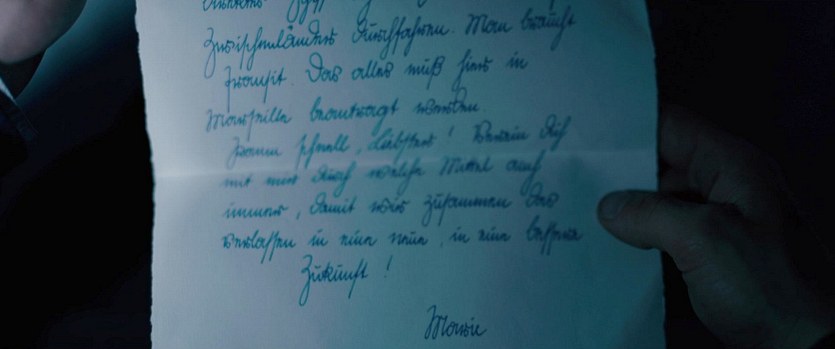 Zwischenländer durchfahren. Man braucht
Transit. Das alles muß hier in
Marseille beantragt werden.
Komm schnell, Liebster! Verein dich
mit mir durch welche Mittel auch
immer, damit wir zusammen das
verlassen in eine neue, in eine bessere
Zukunft!
Marie